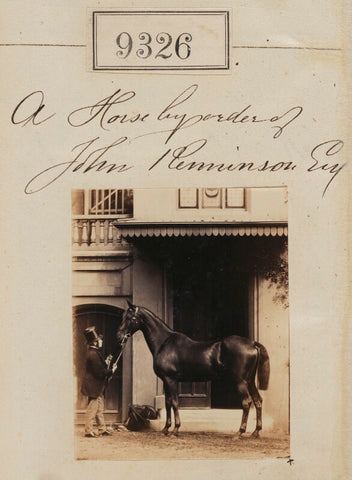 9326
A Horse by order of
John Renninson Esq